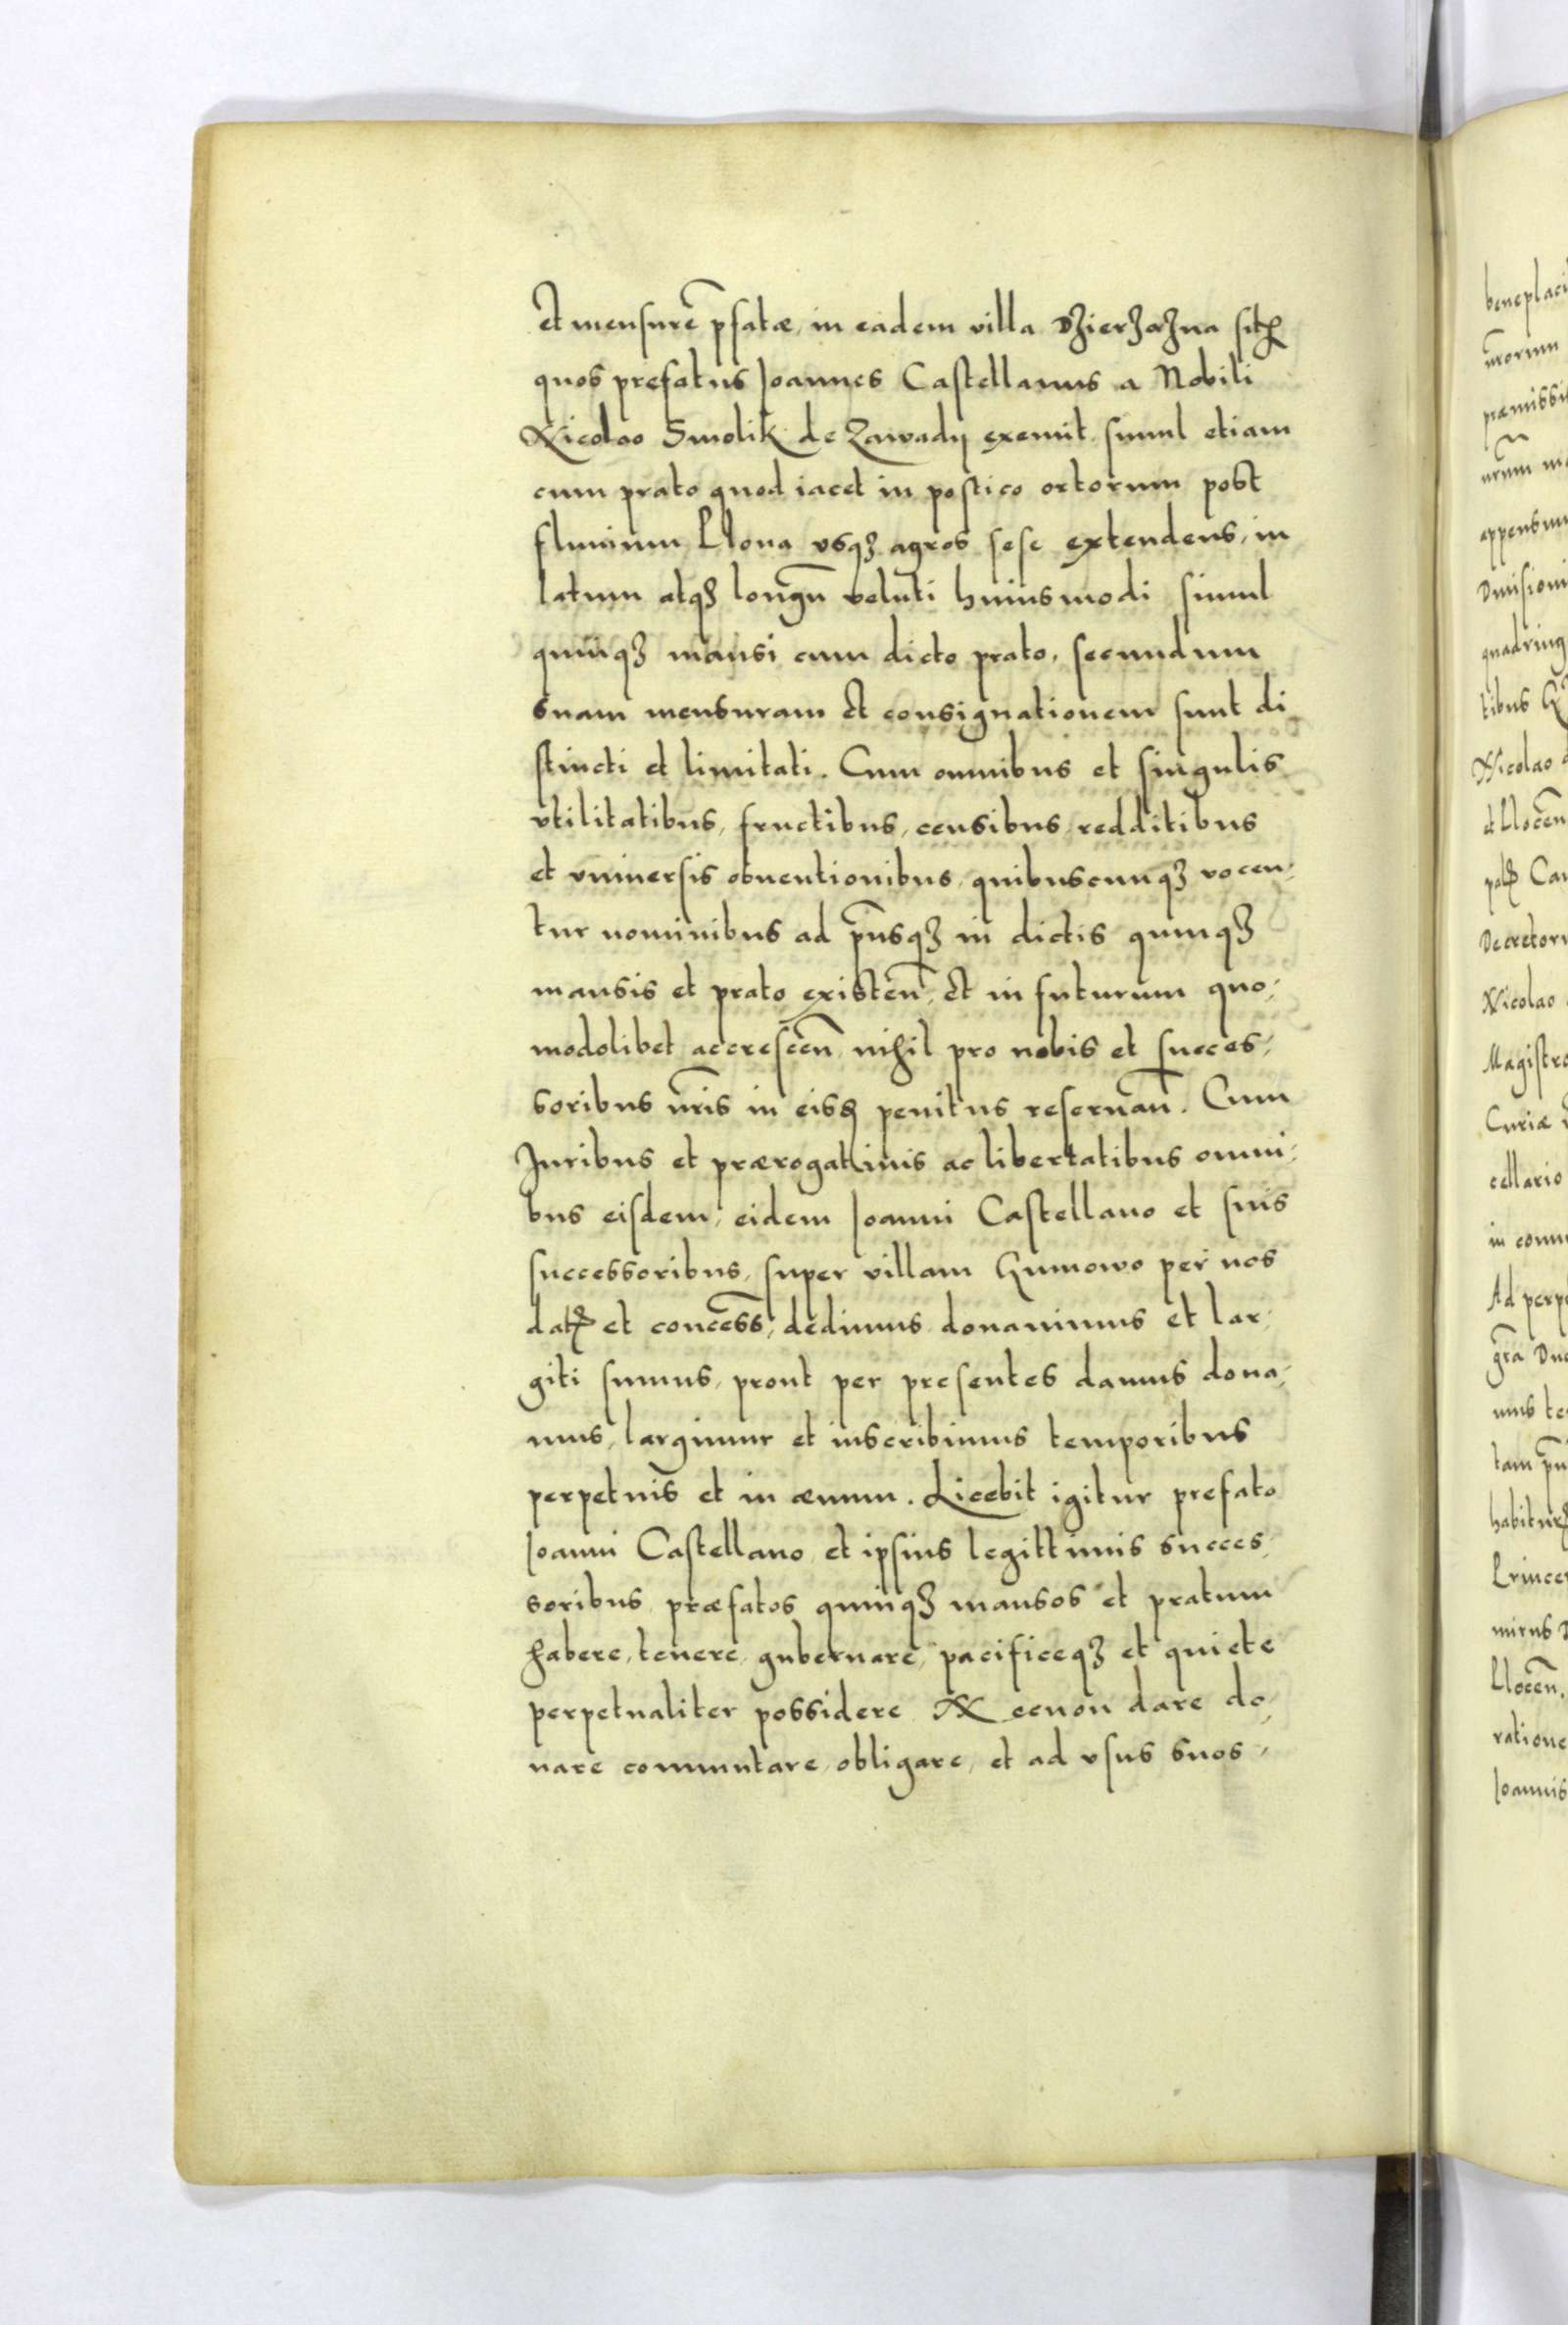 et mensurē p̄fatæ, in eadem villa DzierZaZna sitꝭ
quos prefatus Joannes Castellanus a Nobili
Nicolao Smolik de Zawady exemit, simul etiam
cum prato quod iacet in postico ortorum post
fluuium Plona vsqꝫ agros sese extendens, in
latum atqꝫ longū veluti huiusmodi simul
quinqꝫ mansi cum dicto prato, secundum
suam mensuram et consignationem sunt di
stincti et limitati. Cum omnibus et singulis
vtilitatibus, fructibus, censibus, redditibus
et vniuersis obuentionibus, quibuscunqꝫ vocen:
tur nominibus ad p̄nsqꝫ in dictis quinqꝫ
mansis et prato existen̄, et in futurum quo:
modolibet accrescen̄, nihil pro nobis et succes:
soribus nr̄is in eisꝫ penitus reseruan̄. Cum
Juribus et prærogatiuis ac libertatibus omni:
bus eisdem, eidem Joanni Castellano et suis
successoribus, super villam Gumowo per nos
datꝭ et concēss, dedimus donauimus et lar:
giti sumus, prout per presentes damus dona:
mus, largimur et inscribimus temporibus
perpetuis et in æuum. Licebit igitur prefato
Joanni Castellano, et ipsius legittimis succes:
soribus, præfatos quinqꝫ mansos et pratum
habere, tenere, gubernare, pacificeqꝫ et quiete
perpetualiter possidere Necnon dare do:
nare commutare, obligare, et ad vsus suos,
beneplaci
præmissi
appensum
quadring
tibus
Nicolao
Decretor
Nicolao
Magistro
Curiæ
cellario
Ad perpe
gr̄a Du
mus te
ratione
Joannis